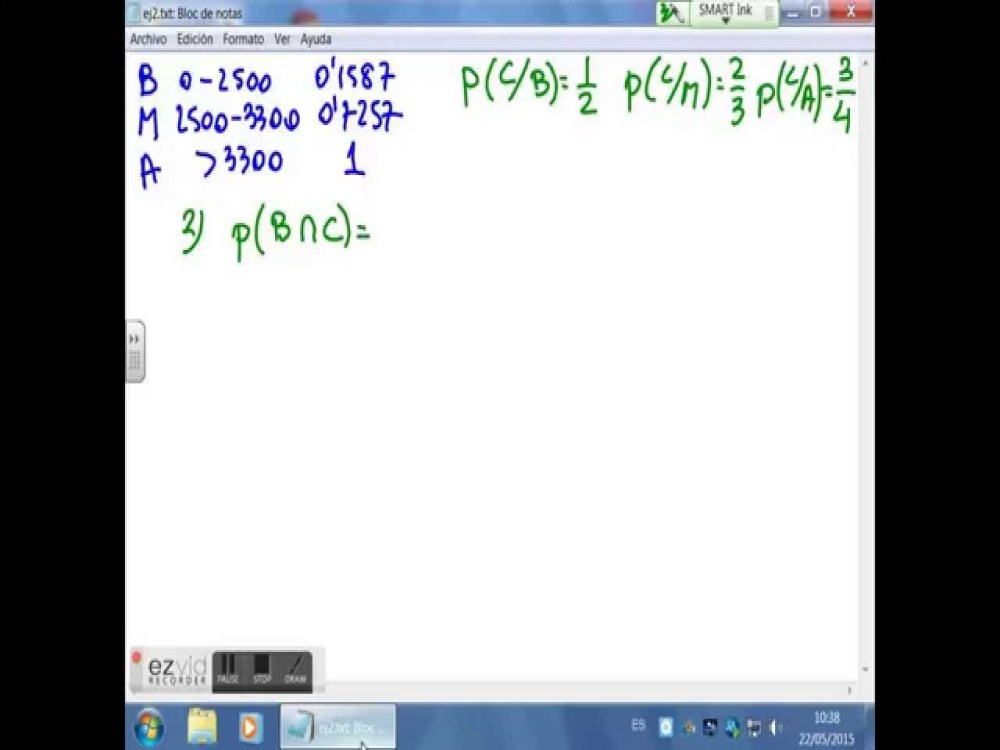 ej2.txt: Bloc de notas
SMART Ink
Archivo Edición Formato Ver Ayuda
B 0-2500 0'1587
M 2500-3300 0'7257
A >3300 1
P(C/B)=1/2 p(C/M)=2/3 p(C/A)=3/4
2) p(B∩C)=
ezvid
RECORDER
PAUSE STOP DRAW
ej2.txt: Bloc ...
ES
10:38
22/05/2015